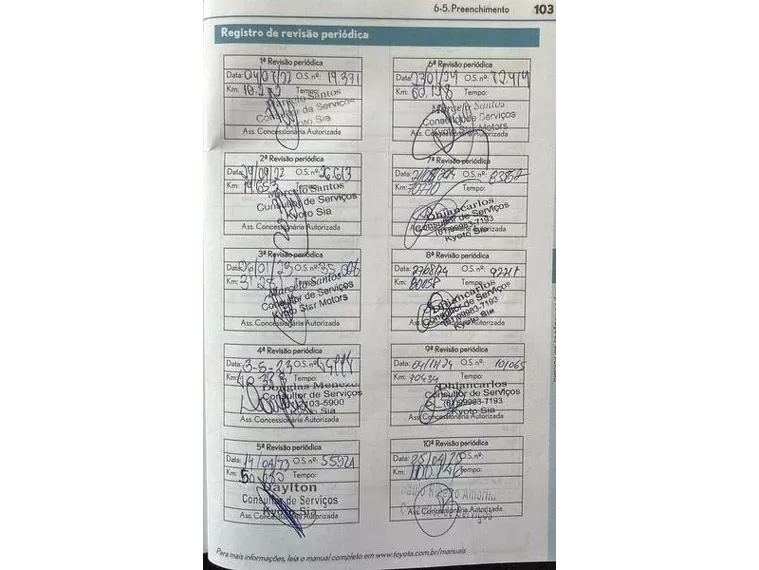 6-5. Preenchimento 103
Registro de revisão periódica
1ª Revisão periódica
Data: 04/07/22 O.S. nº: 19.331
Km: Tempo:
Marcelo Santos
Consultor de Serviços
Kyoto Sia
Ass. Concessionária Autorizada
2ª Revisão periódica
Data: 29/09/22 O.S. nº: 26.613
Km: 19.653
Marcelo Santos
Consultor de Serviços
Kyoto Sia
Ass. Concessionária Autorizada
3ª Revisão periódica
Data: /01/23 O.S. nº:
Km:
Marcelo Santos
Consultor de Serviços
Kyoto Star Motors
Ass. Concessionária Autorizada
4ª Revisão periódica
Data: 3-5-23 O.S. nº:
Km: Tempo:
Douglas Menezes
Consultor de Serviços
103-5900
Kyoto Sia
Ass. Concessionária Autorizada
5ª Revisão periódica
Data: 14/08/23 O.S. nº: 55921
Km: Tempo:
Daylton
Consultor de Serviços
Kyoto Sia
Ass. Concessionária Autorizada
6ª Revisão periódica
Data: 23/01/24 O.S. nº: 72414
Km: 60.178 Tempo:
Marcelo Santos
Serviços
Kyoto Star Motors
Ass. Concessionária Autorizada
7ª Revisão periódica
Data: O.S. nº: 83862
Km: 70710 Tempo:
Dhiancarlos
Consultor de Serviços
(61)99983-7193
Kyoto Sia
Ass. Concessionária Autorizada
8ª Revisão periódica
Data: 27/08/24 O.S. nº: 92217
Km: 80058 Tempo:
Dhiancarlos
Consultor de Serviços
(61)99983-7193
Kyoto Sia
Ass. Concessionária Autorizada
9ª Revisão periódica
Data: 04/12/24 O.S. nº: 101065
Km: 90434 Tempo:
Dhiancarlos
Consultor de Serviços
(61)99983-7193
Kyoto Sia
Ass. Concessionária Autorizada
10ª Revisão periódica
Data: O.S. nº:
Km: Tempo:
Ass. Concessionária Autorizada
Para mais informações, leia o manual completo em www.toyota.com.br/manuais